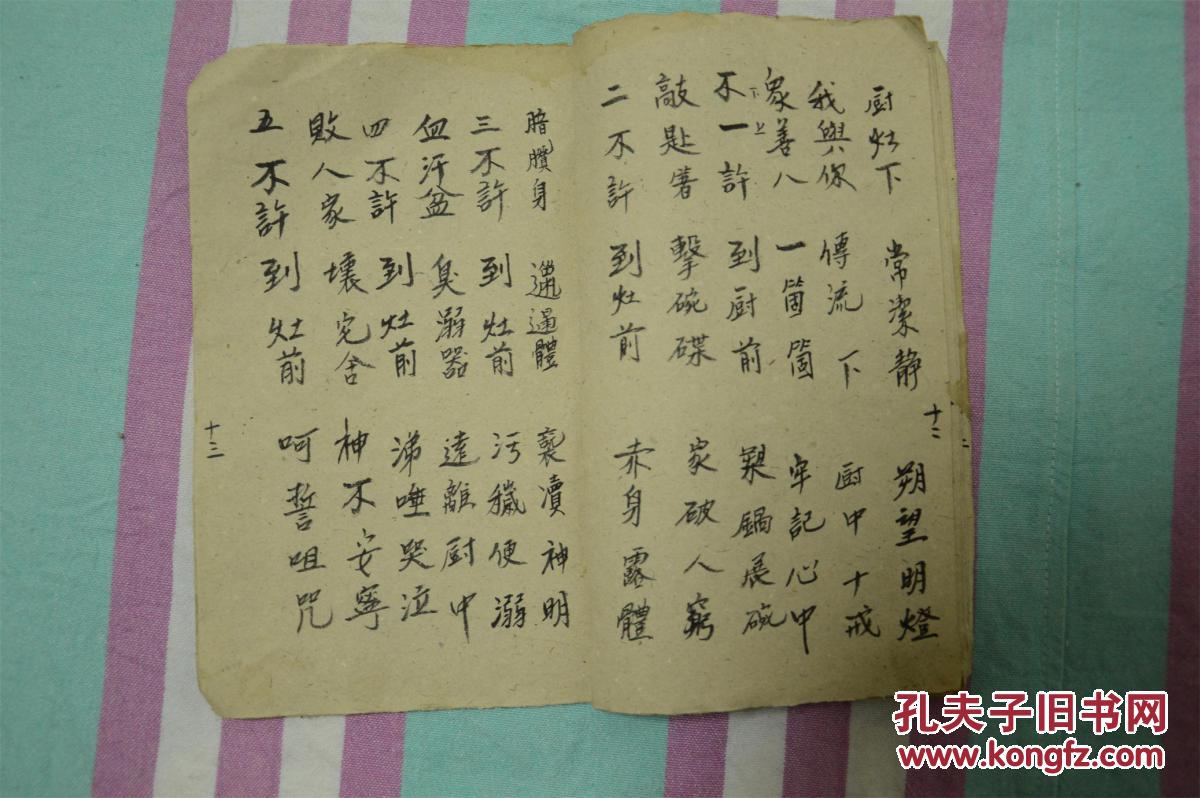 厨灶下 常潔静 朔望明燈
我與你 傳流下 厨中十戒
衆善人 一箇箇 牢記心中
不一許 到厨前 鍋展碗
下上
敲匙箸 擊碗碟 家破人窮
二不許 到灶前 赤身露體
十二
暗身 邋遢體 褻瀆神明
三不許 到灶前 污穢便溺
血汗盆 臭溺器 遠離厨中
四不許 到灶前 涕唾哭泣
敗人家 壞宅舍 神不安寧
五不許 到灶前 呵誓咀咒
十三
孔夫子旧书网
www.kongfz.com